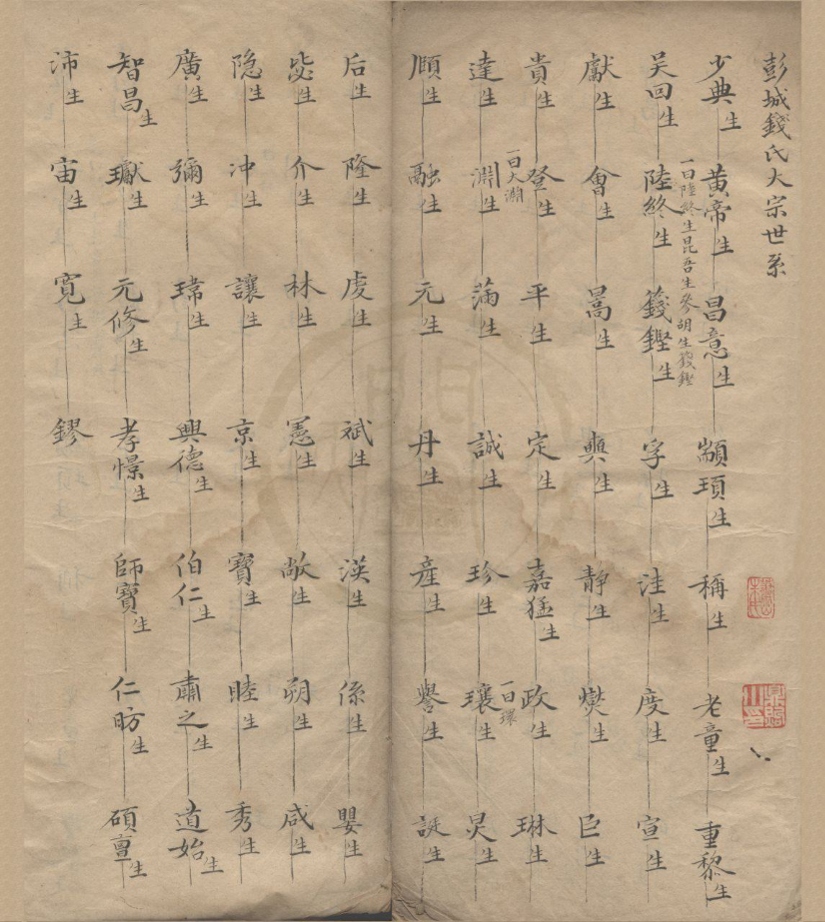 彭城錢氏大宗世系
少典生 黄帝生 昌意生 顓頊生 稱生 老童生 重黎生
吴回生 陸終生 籛鏗生 孚生 洼生 度生 宣生
一曰陸終生昆吾生參胡生籛鏗
獻生 會生 暠生 輿生 靜生 爕生 臣生
貴生 登生 平生 定生 嘉猛生 政生 琳生
達生 淵生 滿生 誠生 珍生 瓌生 炅生
一曰大淵
一曰環
順生 融生 元生 丹生 產生 譽生 誕生
后生 隆生 虔生 斌生 渶生 係生 嬰生
毖生 介生 林生 憲生 敞生 朔生 咸生
隐生 冲生 讓生 京生 寶生 睦生 秀生
廣生 彌生 瑋生 興德生 伯仁生 肅之生 道始生
智昌生 瓛生 元修生 孝憬生 師寶生 仁昉生 碩亶生
沛生 宙生 寬生 鏐